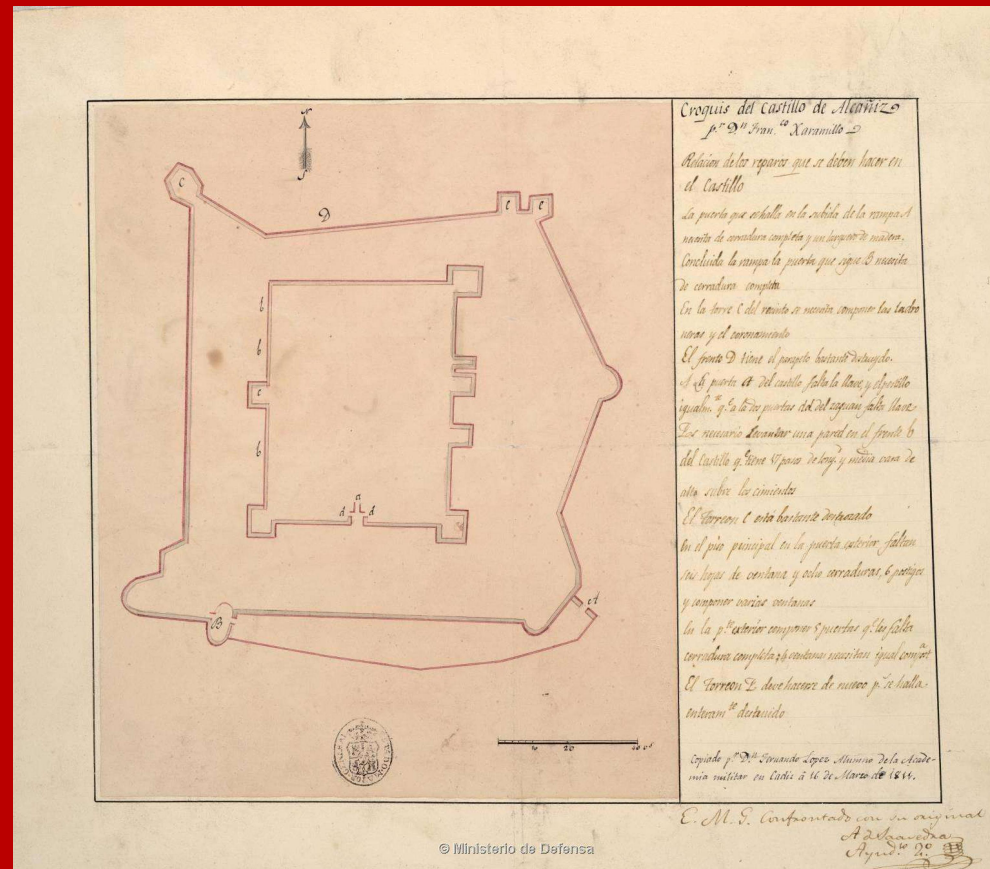 Croquis del Castillo de Alcañiz
pr Dn Fran.co Xaramillo
Relacion de los reparos que se deben hacer en
el Castillo
La puerta que se halla en la subida de la rampa A
necesita de cerradura completa y un largero de madera.
Concluida la rampa la puerta que sigue B necesita
de cerradura completa
En la torre C del recinto se necesita componer las ladro
neras y el coronamiento
El frente D tiene el parapeto bastante destruydo.
A la puerta a del castillo falta la llave, y el pestillo
igualm.te q.e a las dos puertas dd del zaguan falta llave
Es necesario levantar una pared en el frente b
del Castillo q.e tiene 17 pasos de long.d y media vara de
alto sobre los cimientos
El Torreon C está bastante destrozado
En el piso principal en la puerta exterior faltan
seis hojas de ventana y ocho cerraduras, 6 postigos
y componer varias ventanas
En la p.te exterior componer 5 puertas q.e les falta
cerradura completa y ventanas necesitan igual
El Torreon E deve hacerse de nuevo p.r se halla
enteram.te destruido
Copiado pr Dn Fernando Lopez Alumno de la Acade-
mia militar en Cadiz á 16 de Marzo de 1811.
E. M. G. Confrontado con su original
A de Saavedra
Ayud.te 2º
N
S
C
D
e
e
b
b
c
b
a
d
d
B
A
10
20
© Ministerio de Defensa